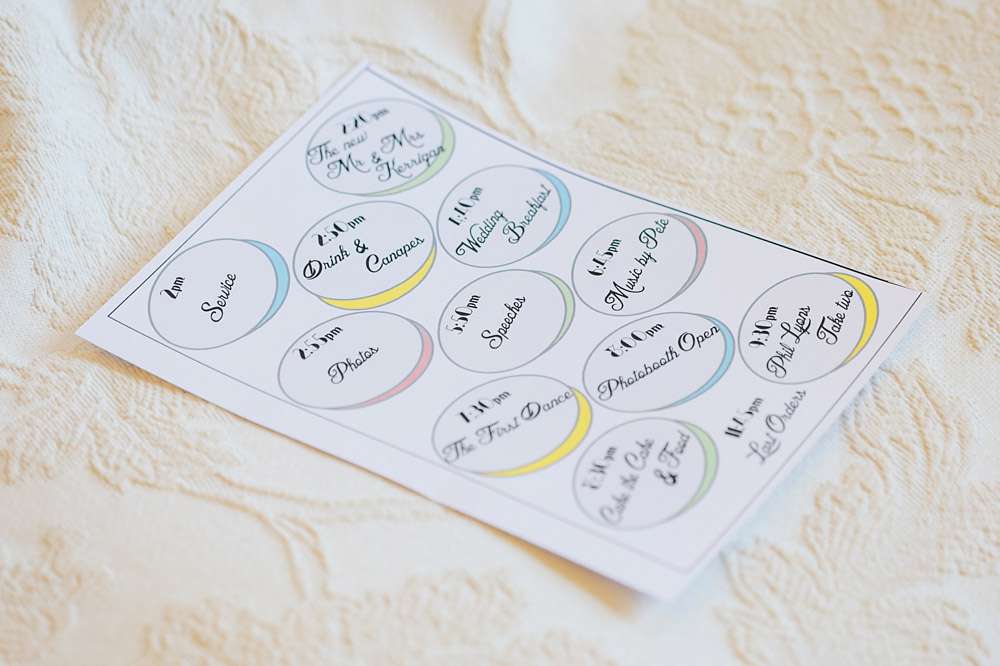 2pm
Service
2.20pm
The new
Mr & Mrs
Kerrigan
2.50pm
Drink &
Canapes
2.55pm
Photos
4.10pm
Wedding
Breakfast
5.50pm
Speeches
6.45pm
Music by Pete
7.30pm
The First Dance
8.00pm
Photobooth Open
8.30pm
Cake the Cake
& Food
9.30pm
Phil Lyons
Take two
Last Orders